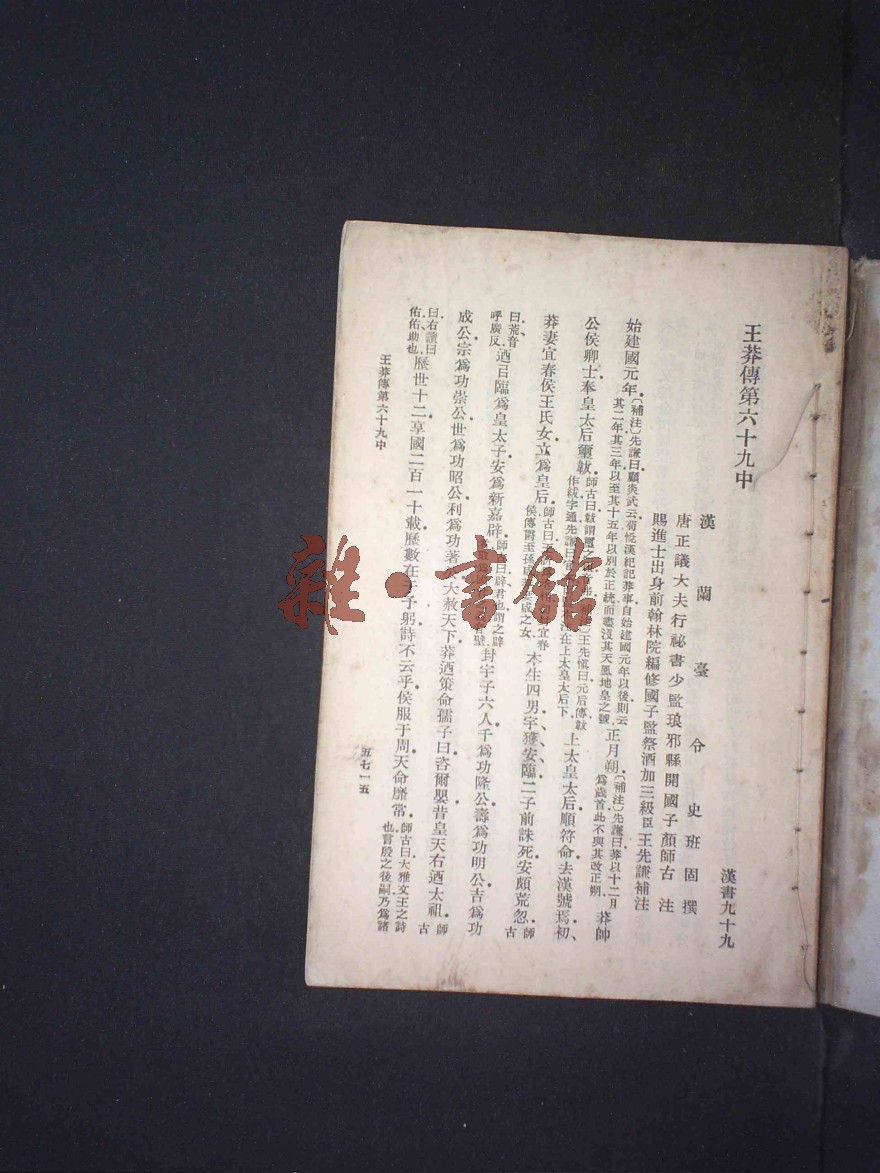 王莽傳第六十九中
漢書九十九
漢蘭臺令史班固撰
唐正議大夫行祕書少監琅邪縣開國子顏師古注
賜進士出身前翰林院編修國子監祭酒加三級臣王先謙補注
始建國元年〔補注〕先謙曰顧炎武云荀悅漢紀記莽事自始建國元年以後則云其二年其三年以至其十五年以別於正統而盡沒其天鳳地皇之號正月朔〔補注〕先謙曰莽以十二月爲歲首此不與其改正朔莽帥
公侯卿士奉皇太后璽韍師古曰韍謂璽之作紱字通先謙曰在上太皇太后下王先愼曰元后傳韍上太皇太后順符命去漢號焉初
莽妻宜春侯王氏女立爲皇后師古曰王宜春侯傳爵至孫咸咸之女本生四男宇獲安臨二子前誅死安頗荒忽師古
曰荒音呼廣反迺㠯臨爲皇太子安爲新嘉辟師古曰辟君也謂之辟音壁封宇子六人千爲功隆公壽爲功明公吉爲功
成公宗爲功崇公世爲功昭公利爲功著公大赦天下莽迺策命孺子曰咨爾嬰昔皇天右迺太祖師古
曰右讀曰佑佑助也歷世十二享國二百一十載歷數在于予躬詩不云乎侯服于周天命靡常師古曰大雅文王之詩也言殷之後嗣乃爲諸
王莽傳第六十九中
五七一五
雜·書館